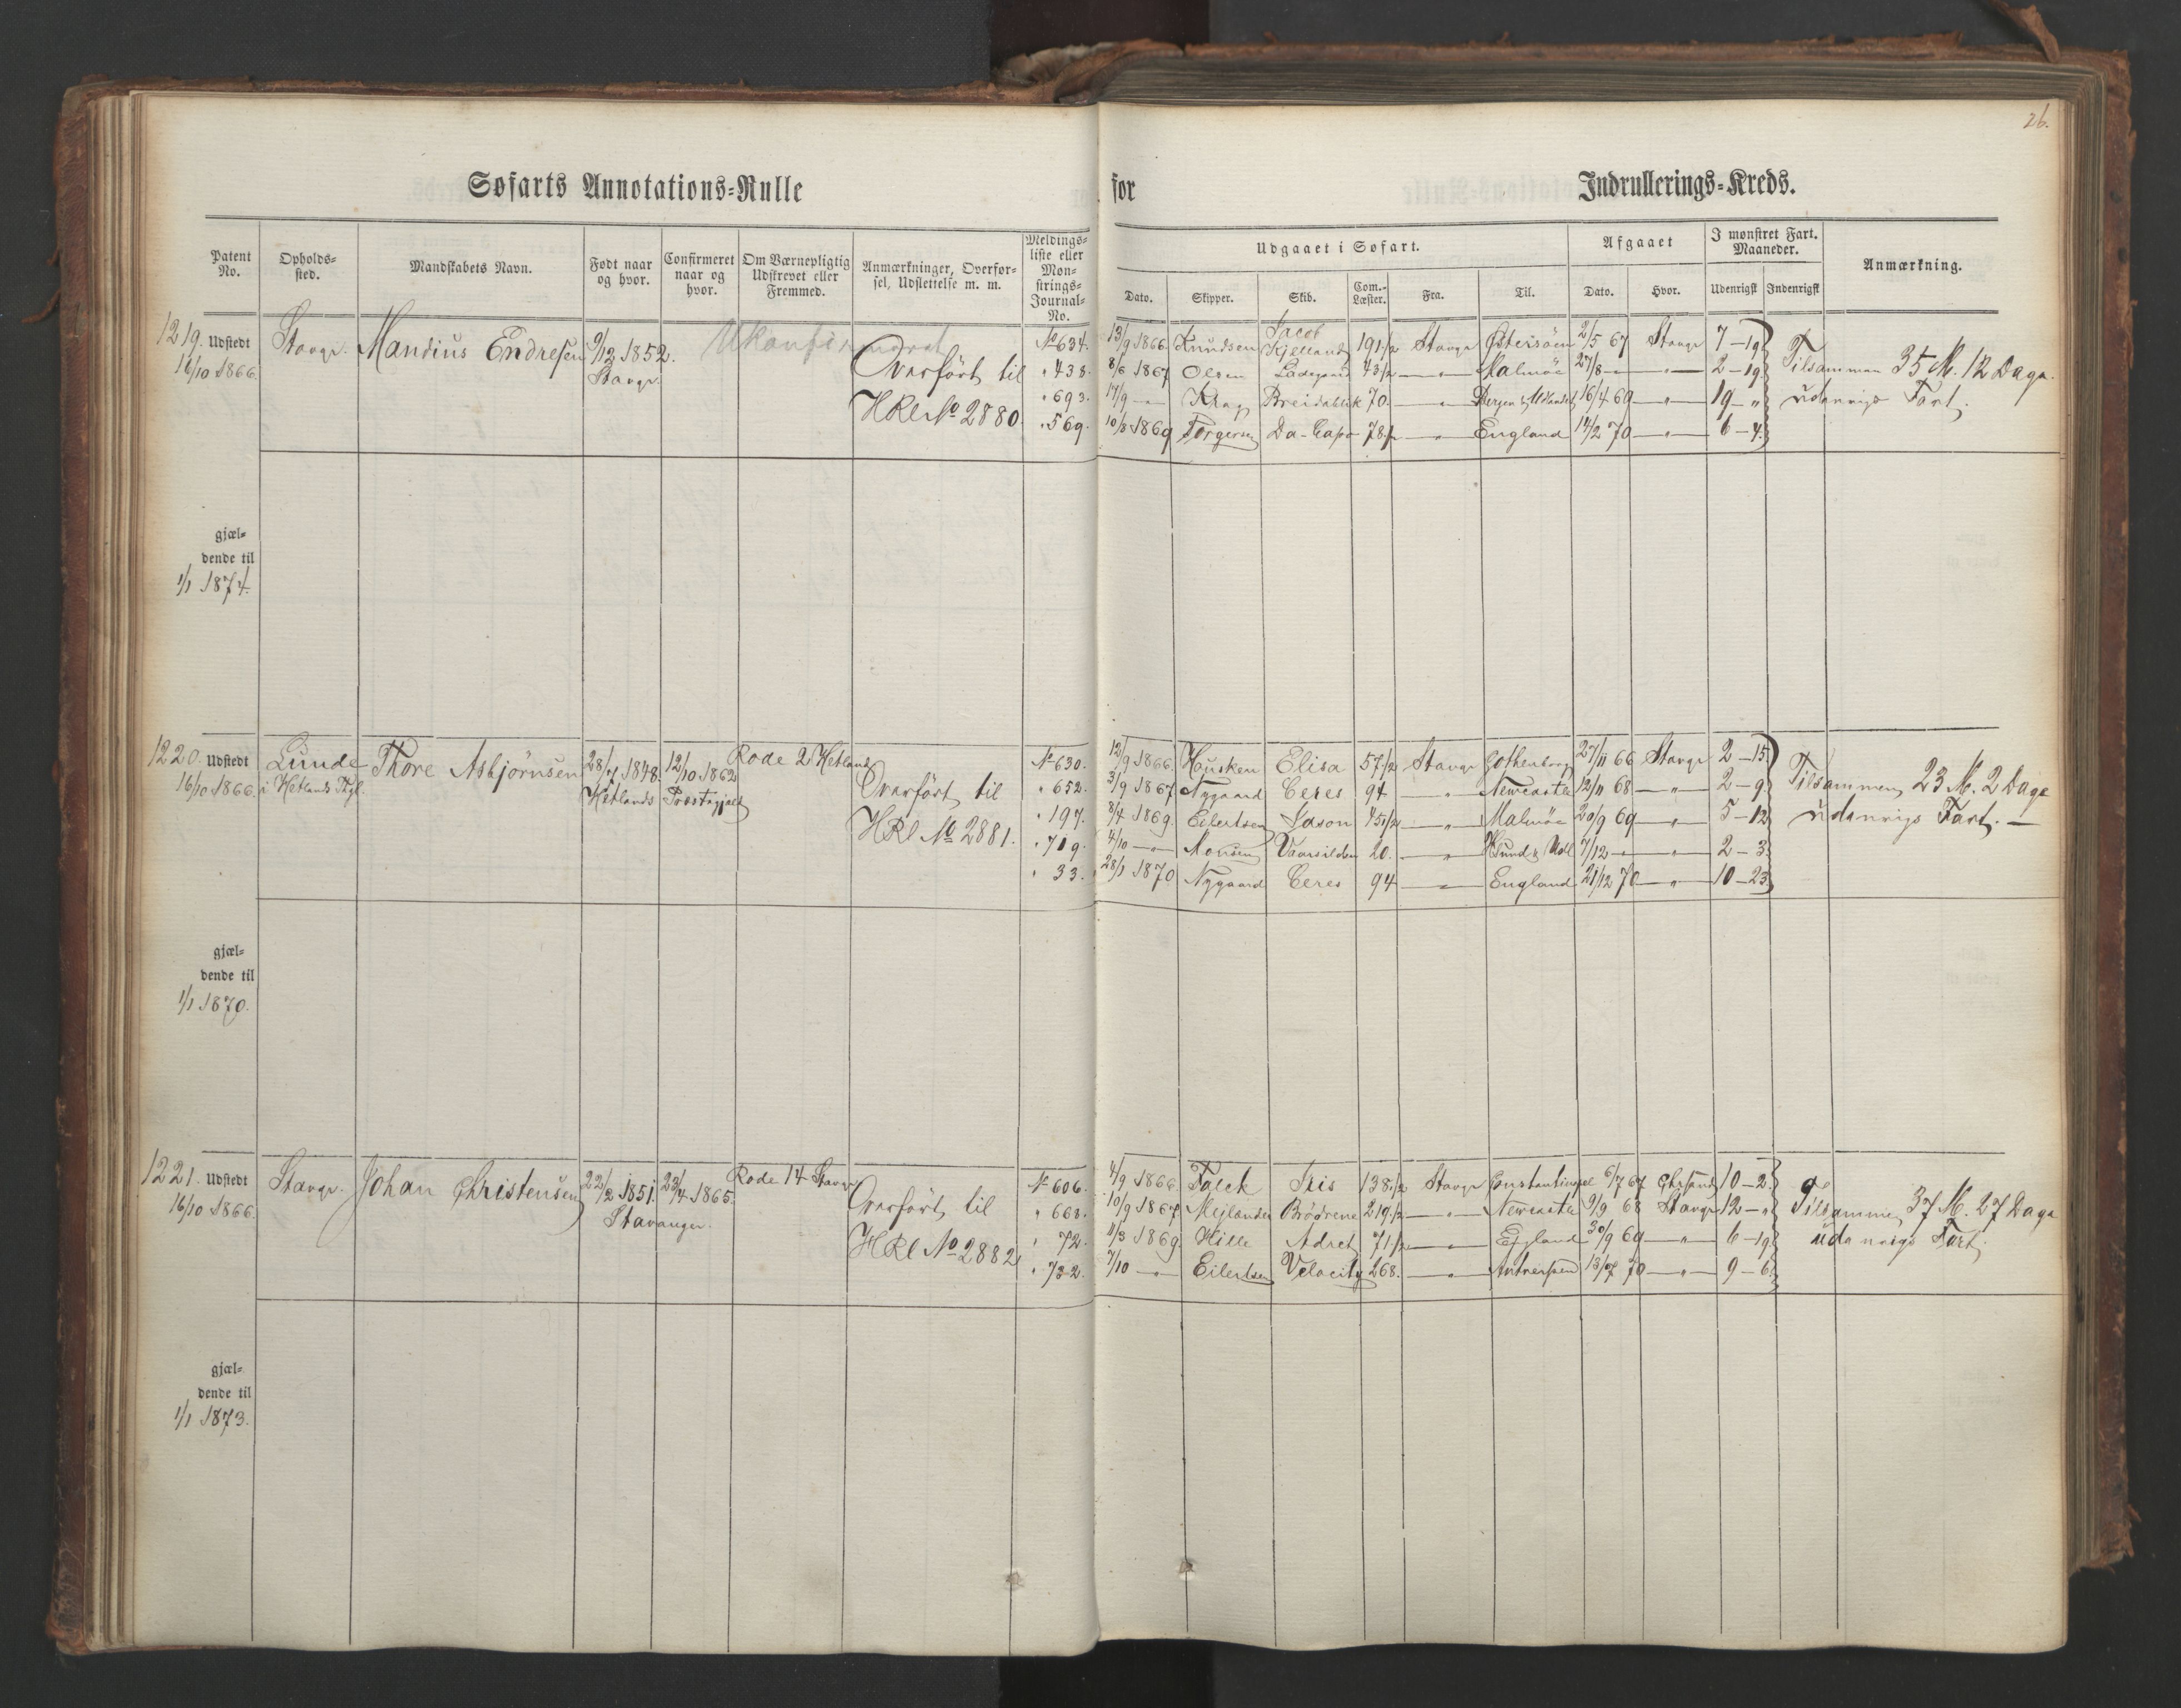 26.
Søfarts Annotations=Rulle for Indrullerings=Kreds.
Patent No. Opholds=sted. Mandskabets Navn. Født naar og hvor. Confirmeret naar og hvor. Om Værnepligtig Udskrevet eller Fremmed. Anmærkninger, Overfør=sel, Udslettelse m. m. Meldings=liste eller Møn=strings=Journal=No.
Udgaaet i Søfart. Afgaaet I mønstret Fart. Maaneder. Anmærkning.
Dato. Skipper. Skib. Com.=Læster. Fra. Til. Dato. Hvor. Udenrigsk Indenrigsk
1219. Udstedt 16/10 1866. Stavgr. Mandius Endresen 9/12 1852. Stavgr. Ukonfirmeret Overført til HRl No 2880.
No 634. 13/9 1866. Knudsen Jacob Kjelland 191 1/2 Stavgr Østersøen 2/5 67 Stavgr 7–19
" 438. 8/6 1867 Olsen Ladegaard 43 1/2 —"— Malmöe 27/8 —"— —"— 2–19
" 693. 17/9 —"— Krag Breidablik 70. —"— Bergen & Udlandet 16/4 69 —"— 19–"
" 569. 10/8 1869 Torgersen Da-Capo 78 1/2 —"— England 14/2 70 —"— 6–4
Tilsammen 35 M. 12 Dage.
udenrigs Fart.
gjæl=
dende til
1/1 1874.
1220. Udstedt 16/10 1866. Lunde i Hetlands Thgl. Thore Asbjørnsen 28/7 1848. 12/10 1862 Hetlands Præstegjæld Rode 2 Hetland Overført til HRl No 2881.
No 630. 12/9 1866. Hausken Elisa 57 1/2 Stavgr Gothenborg 27/11 66 Stavgr 2–15
" 652. 3/9 1867 Nygaard Ceres 94 —"— Newcastle 12/11 68 —"— 2–9
" 197. 8/4 1869. Eilertsen Jason 151 1/2 —"— Malmöe 20/9 69 —"— 5–12
" 719. 4/10 —"— Monsen Vaarsilden 20. —"— & Udl 7/12 —"— —"— 2–3
" 33. 28/1 1870 Nygaard Ceres 94 —"— England 21/12 70 —"— 10–23
Tilsammen 23 M. 2 Dage
udenrigs Fart. —
gjæl=
dende til
1/1 1870.
1221. Udstedt 16/10 1866. Stavgr. Johan Christensen 22/2 1851. 23/4 1865. Stavanger. Rode 14 Stavgr Overført til HRl No 2882
No 606. 4/9 1866. Falck Iris 138 1/2 Stavgr Constantinopel 6/7 67 Chrsand 10–2
" 668. 10/9 1867 Mejlænder Brödrene 219 1/2 —"— Newcastle 9/9 68 Stavgr 12–"
" 72. 11/3 1869. Hille Adret 71 1/2 —"— England 30/9 69 —"— 6–19
" 732. 7/10 —"— Eilertsen Velocity 268. —"— Antwerpen 13/7 70 —"— 9–6
Tilsammen 37 M. 27 Dage
udenrigs Fart.
gjæl=
dende til
1/1 1873.